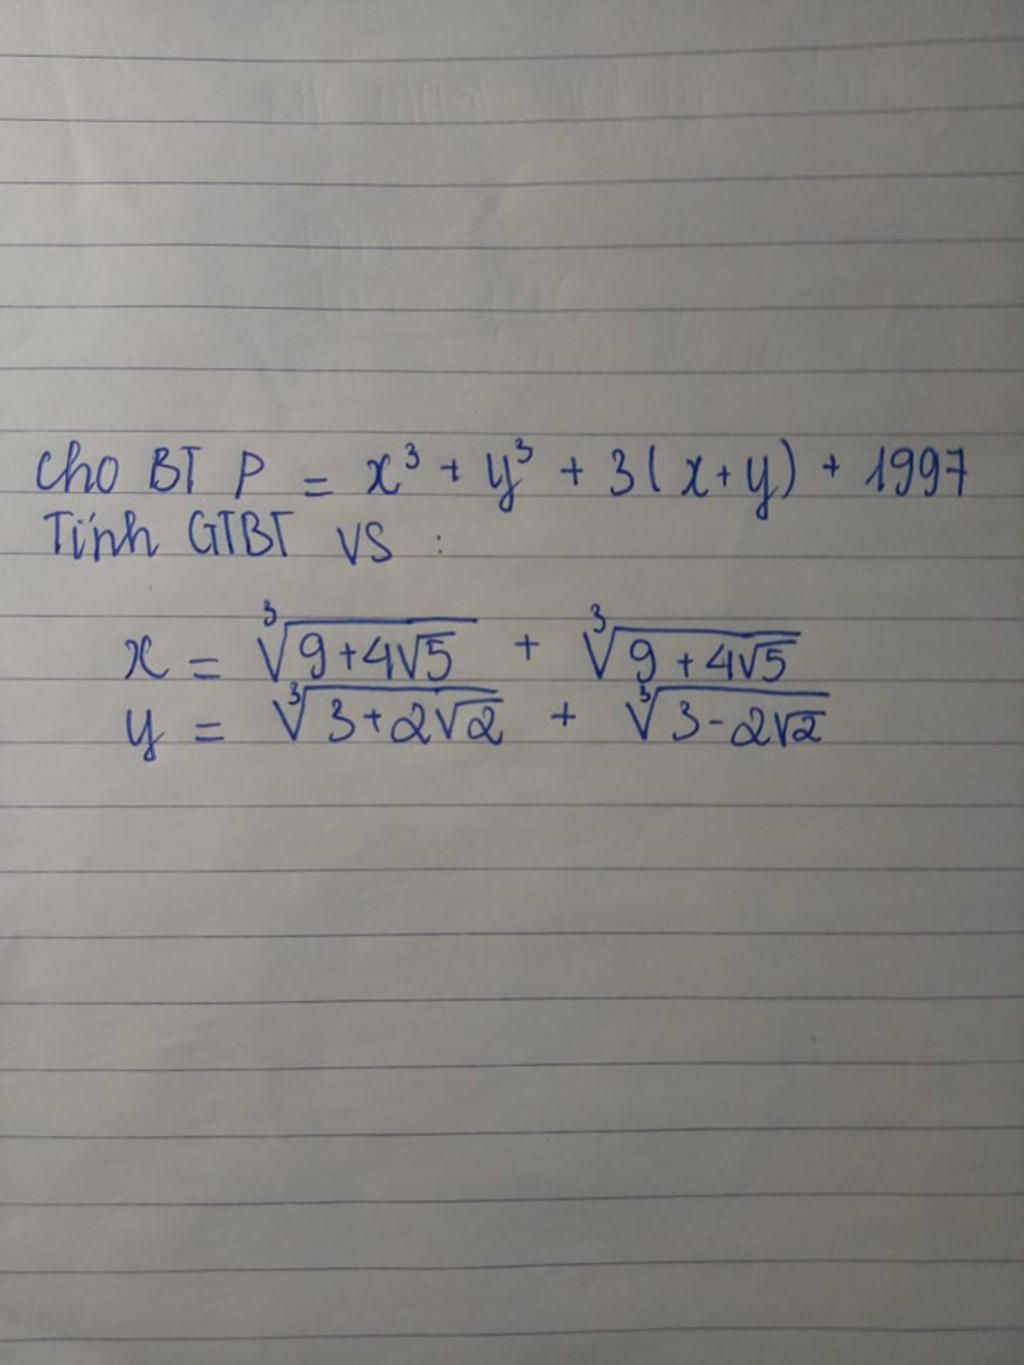 Cho BT P = x³ + y³ + 3(x+y) + 1997
Tính GTBT vs :
x = ∛(9+4√5) + ∛(9+4√5)
y = ∛(3+2√2) + ∛(3-2√2)